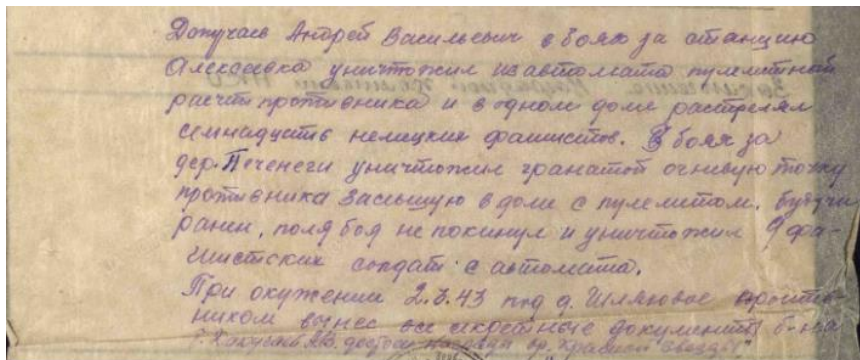 Докучаев Андрей Васильевич в боях за станцию
Алексеевка уничтожил из автомата пулемётный
расчёт противника и в одном доме растрелял
семнадцать немецких фашистов. В боях за
дер. Печенеги уничтожил гранатой огневую точку
противника засевшую в доме с пулемётом. Будучи
ранен, поля боя не покинул и уничтожил 9 фа-
шистских солдат с автомата.
При окружении 2.3.43 под д. Шляховое против-
ником вынес все документы б-на
достоин награды ор. "Красной Звезды"